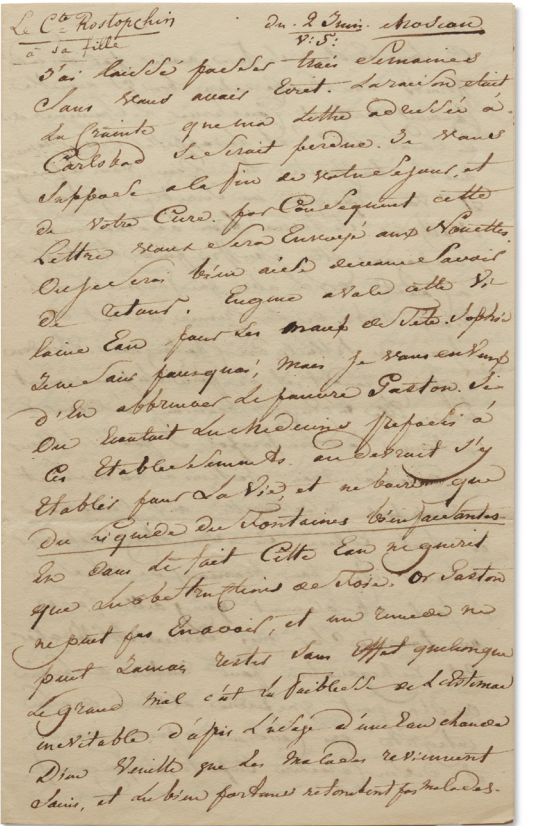 Le Cte Rostopchin
à sa fille
du 2 Juin. Moscou
V. S.
J'ai laissé passer trois Semaines
Sans vous avoir Ecrit. La raison etait
La Crainte que ma Lettre adressée à
Carlsbad Se Serait perdue. Je vous
Suppose a la fin de votre Sejour, et
de votre Cure. par Consequent cette
Lettre vous Sera Envoyé aux Nouettes
Ou je Serai bien aise de vous Savoir
de retour. Eugene avale cette Vi-
laine Eau pour Les maux de Tête. Sophie
Je ne Sais pourquoi, mais Je vous en veux
d'En abbreuver Le pauvre Gaston. Si
On Ecoutait Les Medecins preposés à
Ces Etablissements on devrait S'y
Etablir pour La Vie, et ne boire que
du Liquide de Fontaines bienfaisantes
En de fait Cette Eau ne guerit
que Les obstructions de Foie. Or Gaston
ne peut pas En avoir, et un remede ne
peut Jamais rester Sans Effet quelconque
Le grand mal c'est La faiblesse de L'Estomac
inevitable d'après L'usage d'une Eau chaude
Dieu Veuille que Les Malades reviennent
Sains, et Les bien portans retombent pas malades.